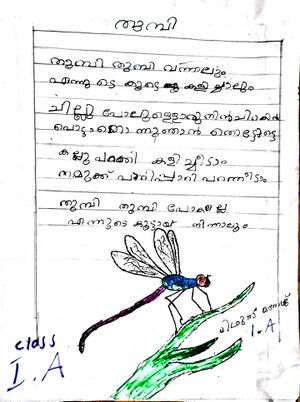 തുമ്പി
തുമ്പി തുമ്പി വന്നാലും
എന്നുടെ കൂടെ കളിച്ചാലും
ചില്ലു പോലുള്ളൊരു നിൻചിറകിൽ
ഞാൻ തൊട്ടോട്ടെ
കല്ലു പെറുക്കി കളിച്ചീടാം
നമുക്ക് പാറിപ്പാറി പറന്നീടാം
തുമ്പി തുമ്പി പോകല്ലേ
എന്നുടെ കൂട്ടായ് നിന്നാലും
class
I.A
I.A